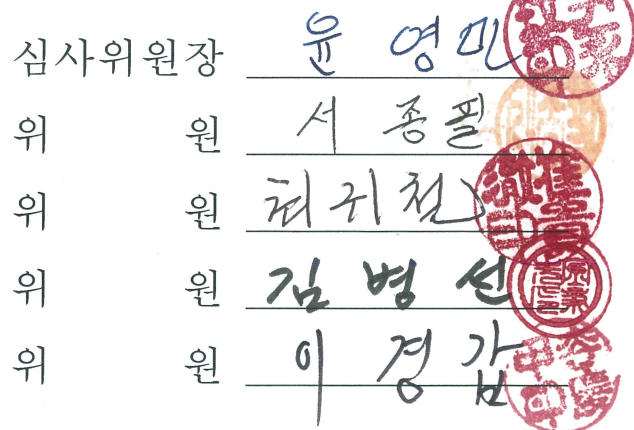 심사위원장 윤 영 민
위 원 서 종 필
위 원 최 귀 철
위 원 김 병 선
위 원 이 경 갑